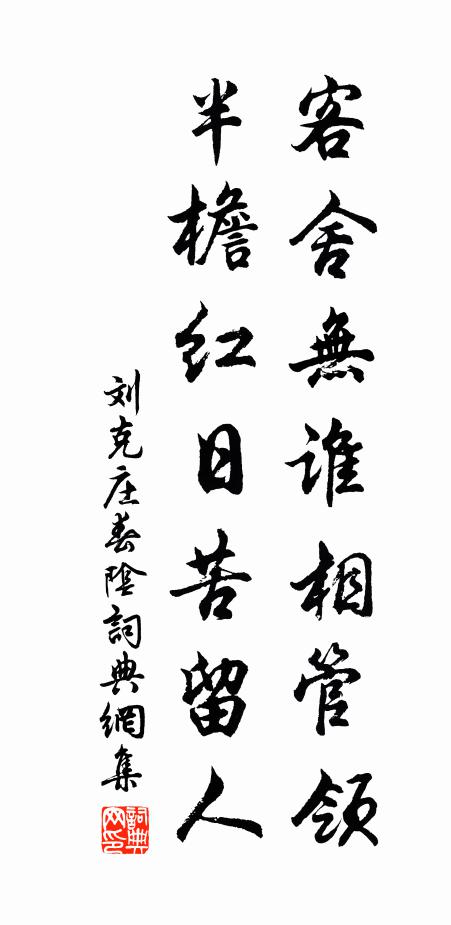 客舍無誰相管領
半檐紅日苦留人
刘克庄春陰詞典網集
詞典网印